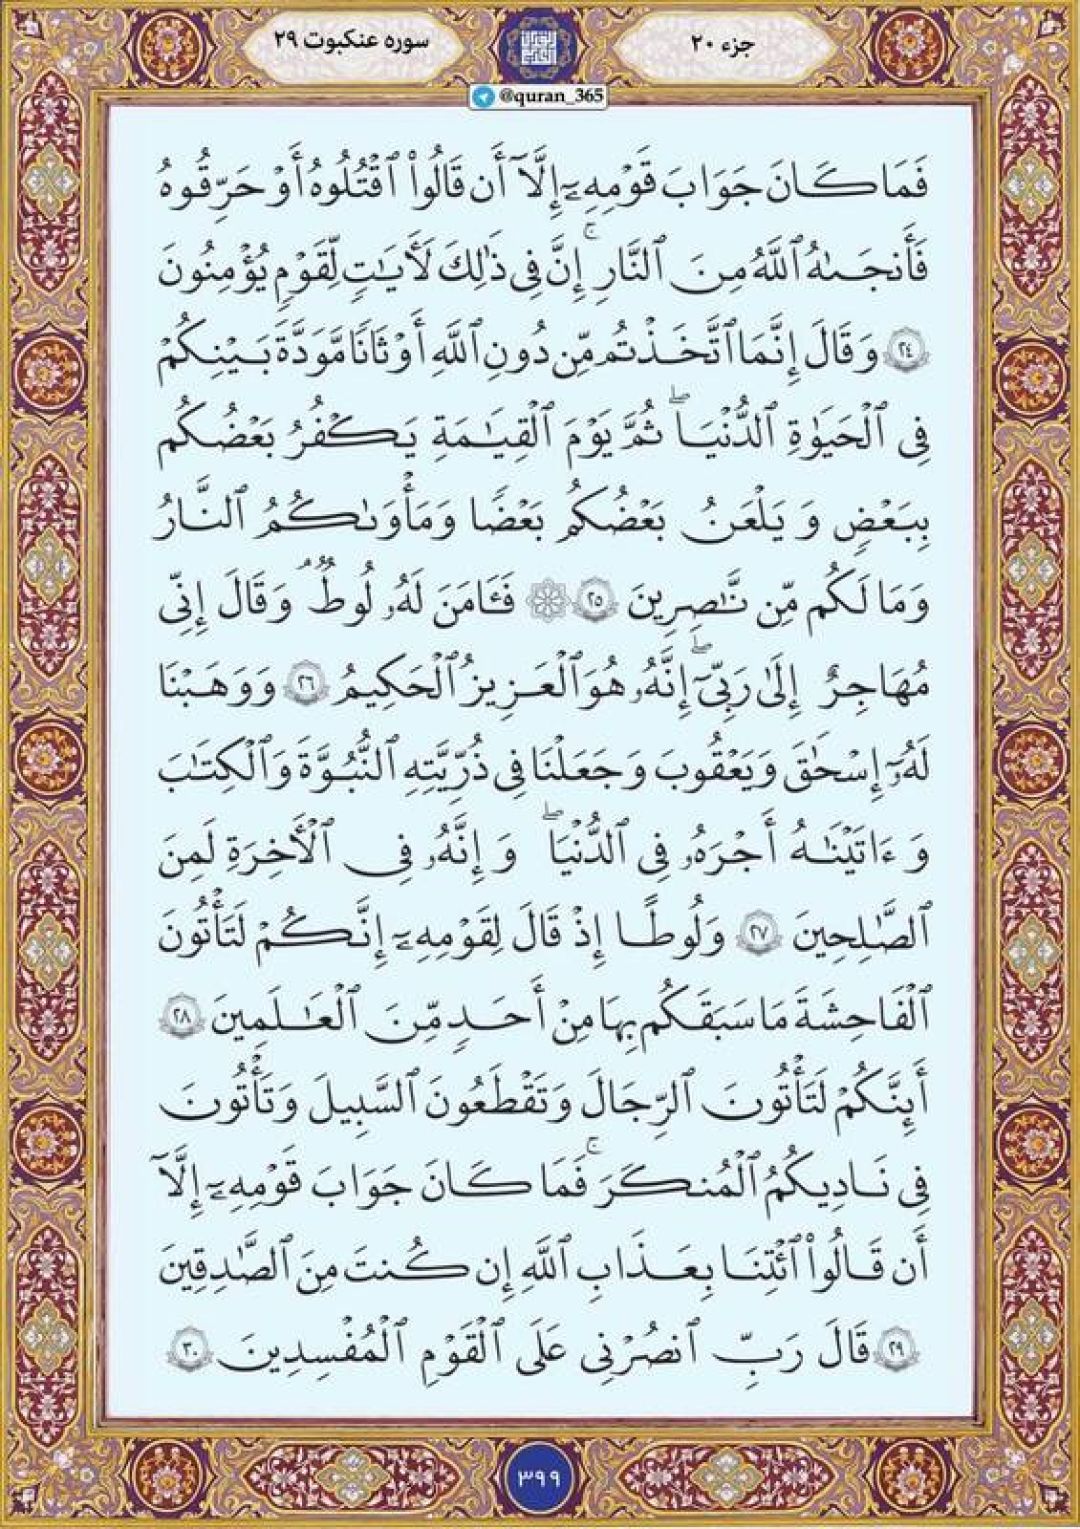 جزء ۲۰
سوره عنکبوت ۲۹
@quran_365
فَمَا كَانَ جَوَابَ قَوْمِهِۦٓ إِلَّآ أَن قَالُوا۟ ٱقْتُلُوهُ أَوْ حَرِّقُوهُ
فَأَنجَىٰهُ ٱللَّهُ مِنَ ٱلنَّارِ ۚ إِنَّ فِى ذَٰلِكَ لَـَٔايَـٰتٍ لِّقَوْمٍ يُؤْمِنُونَ
٢٤ وَقَالَ إِنَّمَا ٱتَّخَذْتُم مِّن دُونِ ٱللَّهِ أَوْثَانًا مَّوَدَّةَ بَيْنِكُمْ
فِى ٱلْحَيَوٰةِ ٱلدُّنْيَا ۖ ثُمَّ يَوْمَ ٱلْقِيَـٰمَةِ يَكْفُرُ بَعْضُكُم
بِبَعْضٍ وَيَلْعَنُ بَعْضُكُم بَعْضًا وَمَأْوَىٰكُمُ ٱلنَّارُ
وَمَا لَكُم مِّن نَّـٰصِرِينَ ٢٥ ۞ فَـَٔامَنَ لَهُۥ لُوطٌ ۘ وَقَالَ إِنِّى
مُهَاجِرٌ إِلَىٰ رَبِّىٓ ۖ إِنَّهُۥ هُوَ ٱلْعَزِيزُ ٱلْحَكِيمُ ٢٦ وَوَهَبْنَا
لَهُۥٓ إِسْحَـٰقَ وَيَعْقُوبَ وَجَعَلْنَا فِى ذُرِّيَّتِهِ ٱلنُّبُوَّةَ وَٱلْكِتَـٰبَ
وَءَاتَيْنَـٰهُ أَجْرَهُۥ فِى ٱلدُّنْيَا ۖ وَإِنَّهُۥ فِى ٱلْـَٔاخِرَةِ لَمِنَ
ٱلصَّـٰلِحِينَ ٢٧ وَلُوطًا إِذْ قَالَ لِقَوْمِهِۦٓ إِنَّكُمْ لَتَأْتُونَ
ٱلْفَـٰحِشَةَ مَا سَبَقَكُم بِهَا مِنْ أَحَدٍ مِّنَ ٱلْعَـٰلَمِينَ ٢٨
أَئِنَّكُمْ لَتَأْتُونَ ٱلرِّجَالَ وَتَقْطَعُونَ ٱلسَّبِيلَ وَتَأْتُونَ
فِى نَادِيكُمُ ٱلْمُنكَرَ ۖ فَمَا كَانَ جَوَابَ قَوْمِهِۦٓ إِلَّآ
أَن قَالُوا۟ ٱئْتِنَا بِعَذَابِ ٱللَّهِ إِن كُنتَ مِنَ ٱلصَّـٰدِقِينَ
٢٩ قَالَ رَبِّ ٱنصُرْنِى عَلَى ٱلْقَوْمِ ٱلْمُفْسِدِينَ ٣٠
۳۹۹